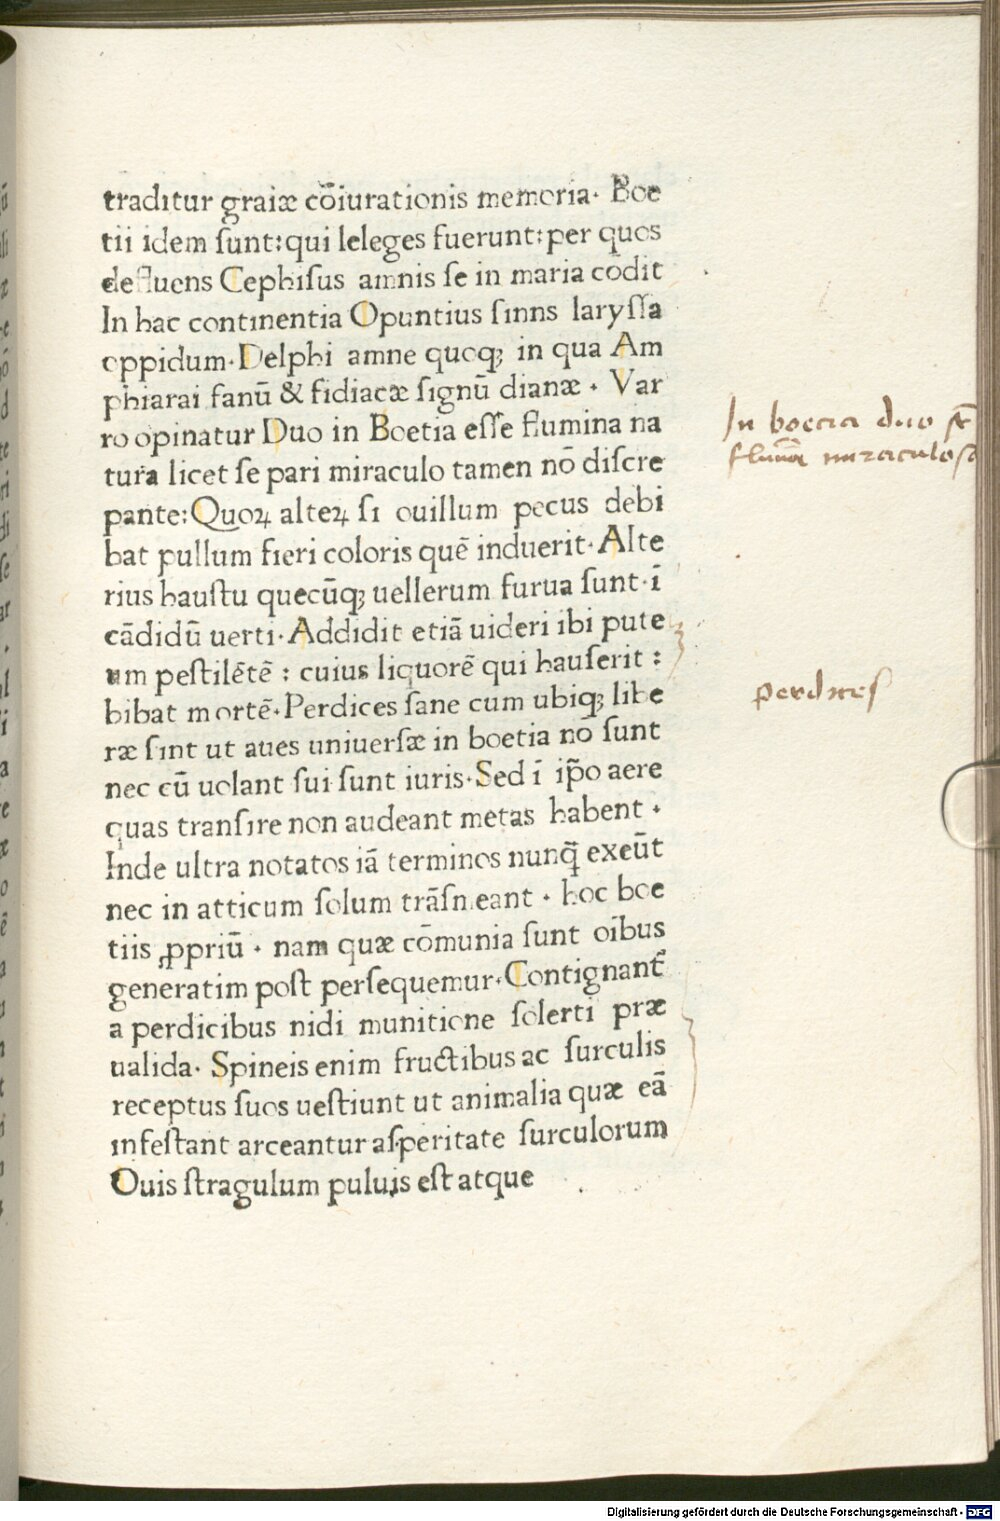 traditur graiæ cōiurationis memoria· Boe
tii idem ſunt:qui leleges fuerunt:per quos
defluens Cephiſus amnis ſe in maria codit
In hac continentia Opuntius ſinns laryſſa
oppidum·Delphi amne quoqꝫ in qua Am
phiarai fanū & fidiacæ ſignū dianæ · Var
ro opinatur Duo in Boetia eſſe flumina na
tura licet ſe pari miraculo tamen nō diſcre
pante:Quoꝝ alteꝝ ſi ouillum pecus debi
bat pullum fieri coloris quē induerit·Alte
rius hauſtu quecūqꝫ uellerum furua ſunt·ī
cādidū uerti·Addidit etiā uideri ibi pute
um peſtilētē : cuius liquorē qui hauſerit :
bibat mortē·Perdices ſane cum ubiqꝫ libe
ræ ſint ut aues uniuerſæ in boetia nō ſunt
nec cū uolant ſui·ſunt iuris·Sed ī ip̄o aere
quas tranſire non audeant metas habent ·
Inde ultra notatos iā terminos nunq̄ exeūt
nec in atticum ſolum trāſmeant · hoc boe
tiis ꝓpriū · nam quæ cōmunia ſunt oībus
generatim poſt perſequemur·Contignant̄
a perdicibus nidi munitione ſolerti præ
ualida· Spineis enim fructibus ac ſurculis
receptus ſuos ueſtiunt ut animalia quæ eā
infeſtant arceantur aſperitate ſurculorum
Ouis ſtragulum puluis eſt atque
In boecia duo st̄
flumīa miraculosa
perdices
Digitalisierung gefördert durch die Deutsche Forschungsgemeinschaft - DFG